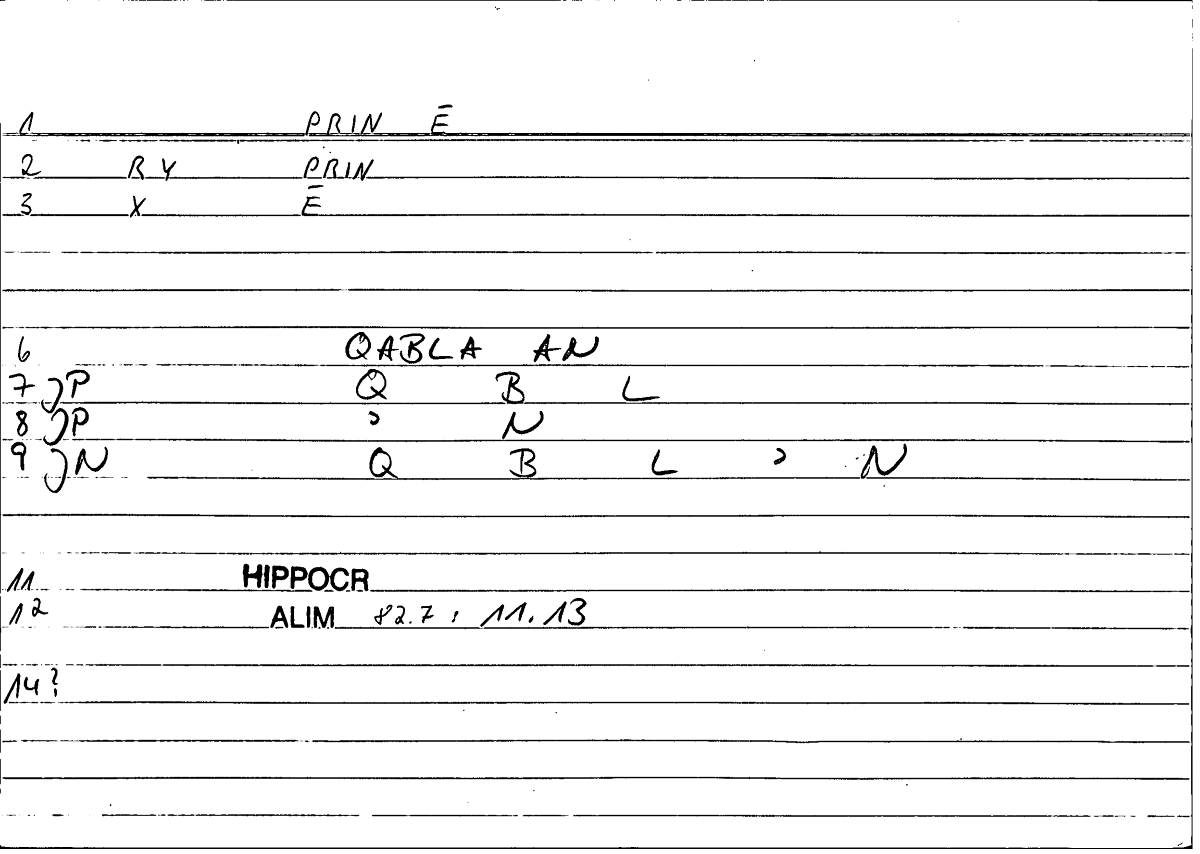 1 PRIN Ē
2 RY PRIN
3 X Ē
6 QABLA AN
7 JP Q B L
8 JP ʾ N
9 JN Q B L ʾ N
11 HIPPOCR
12 ALIM 82.7 : 11.13
14?